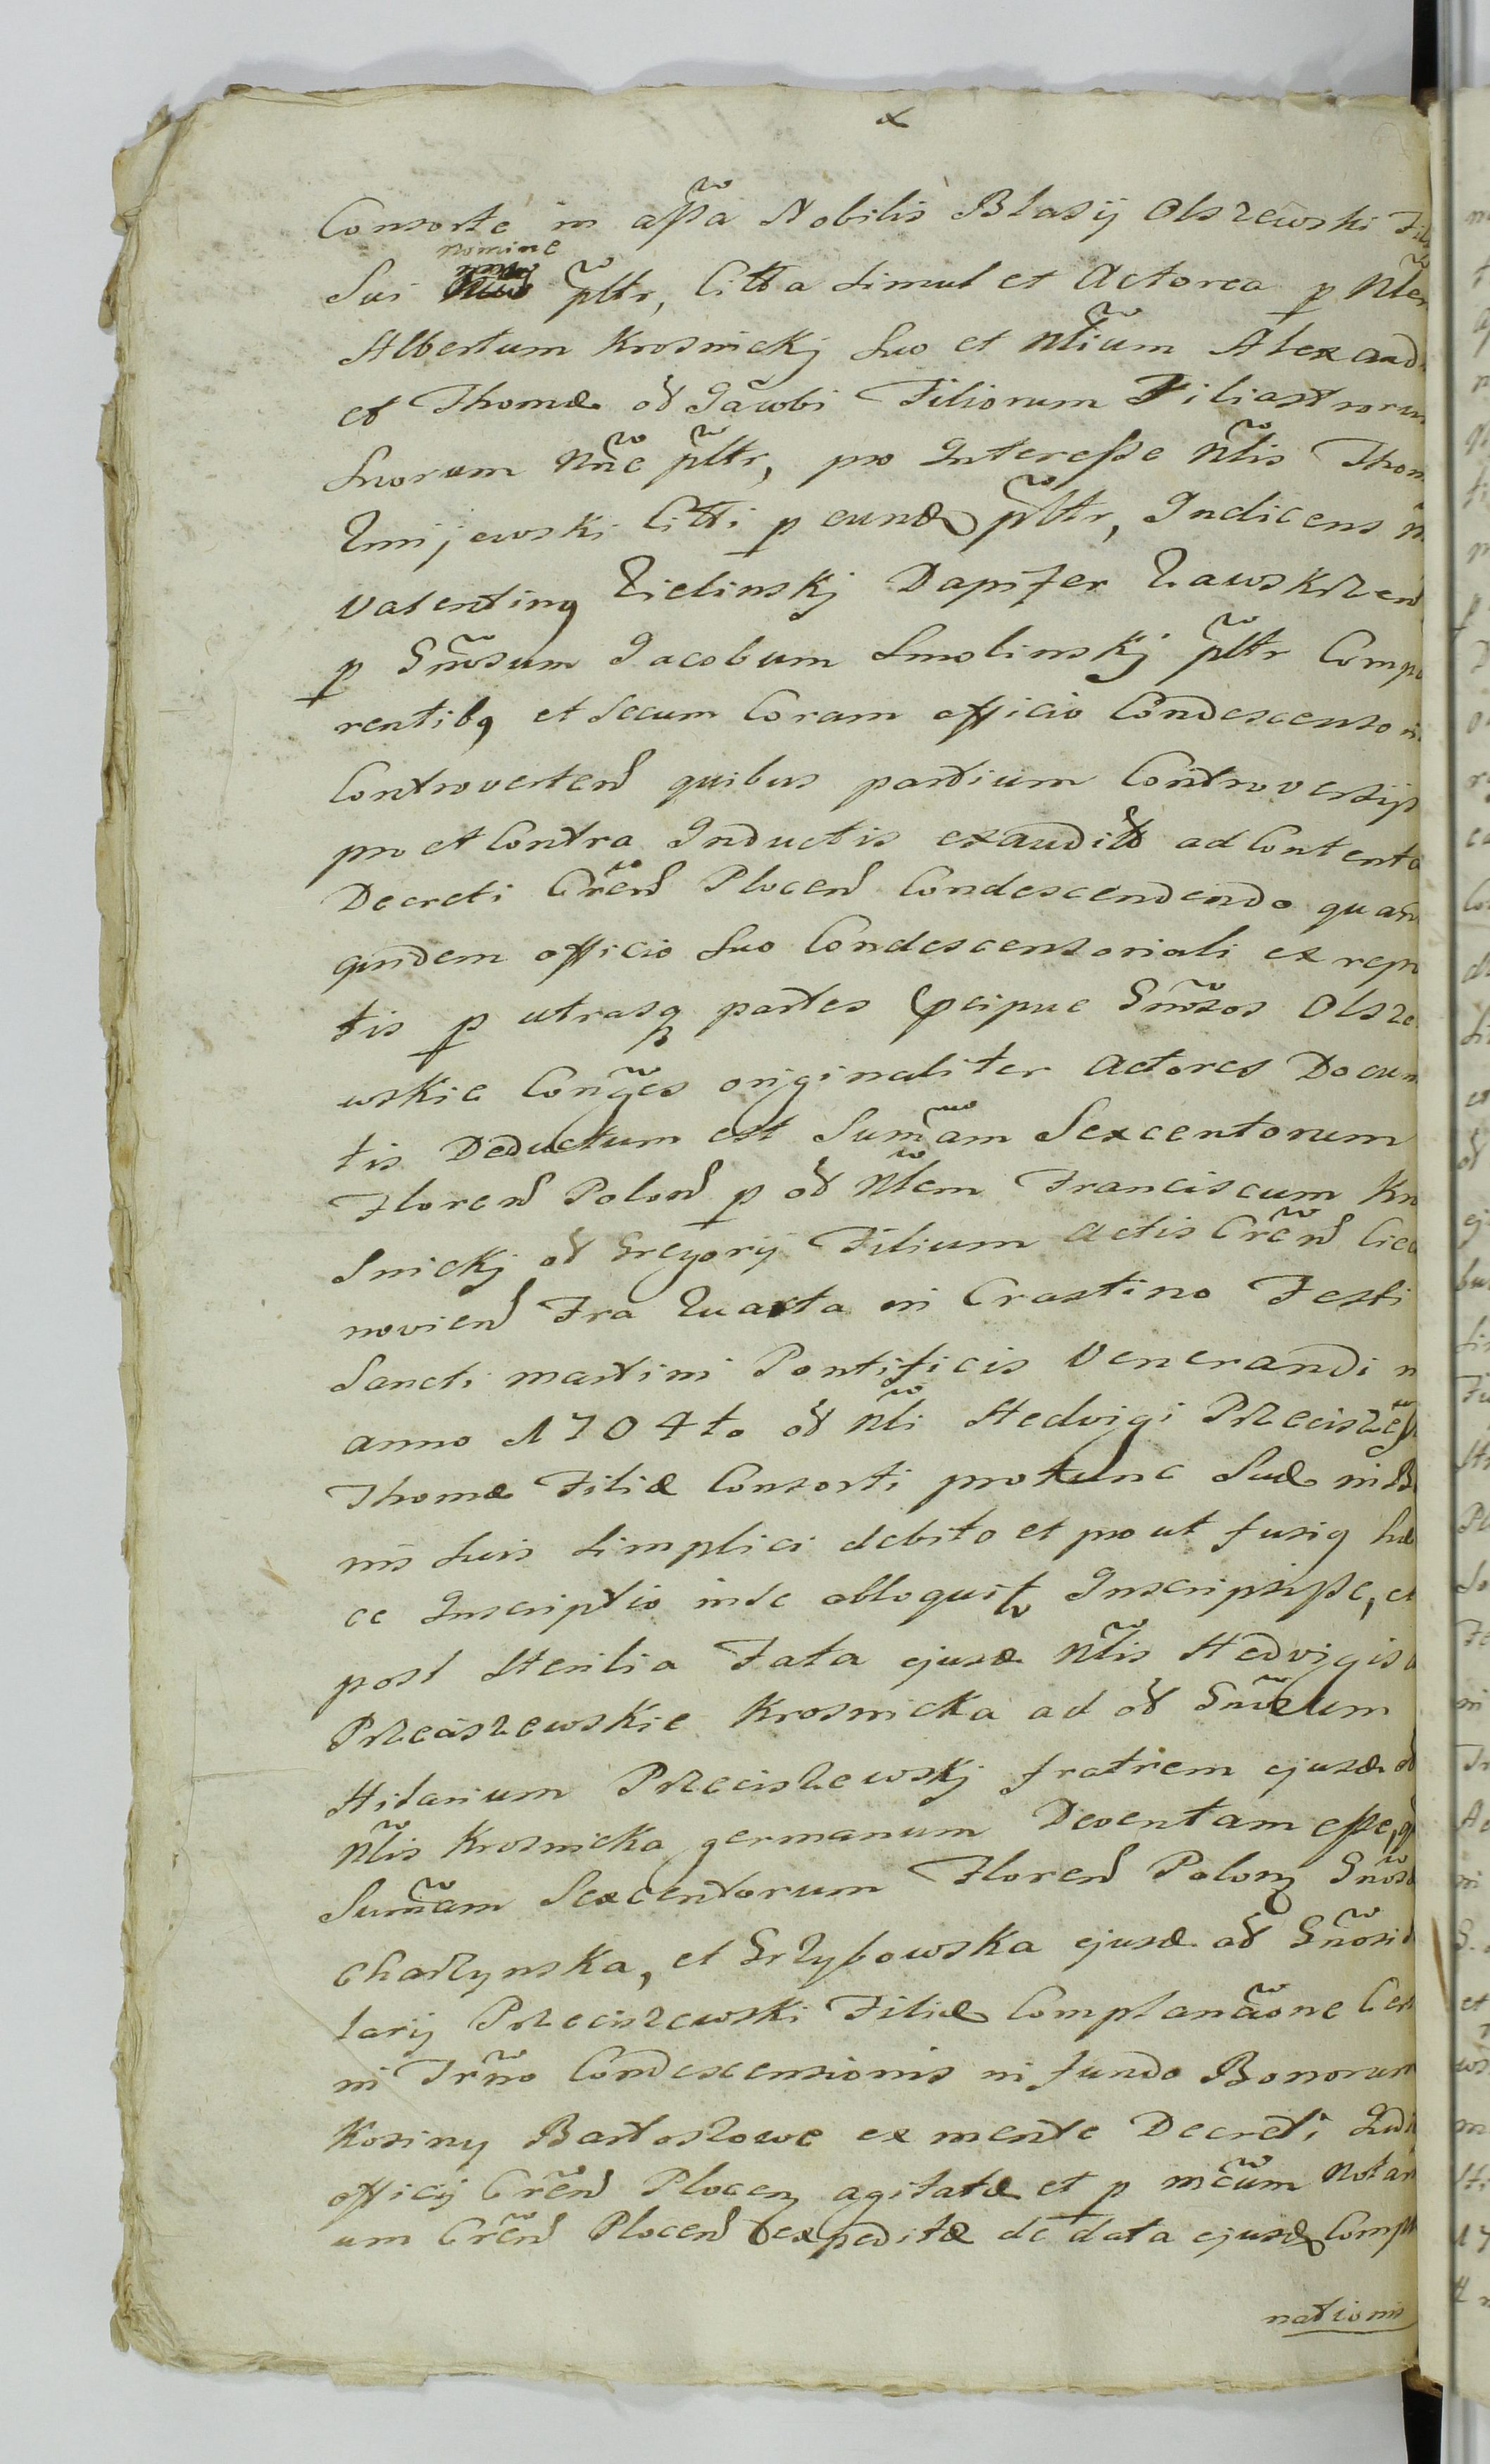 x
Consorte in assa Nobilis Blasij Olszewski Fil
nomine
Sui pltr, Citta simul et Actorea p Nlem
Albertum Krosnickj Suo et Nlium Alexand
et Thomæ oł Jacobi Filiorum Filiastrorum
Suorum Nne pltr, pro Interesse Nlis Thom
Zmijewski Citti p eund pltr, Indicens
Valentinq Zielinskj Dapifer Zawskrzen
p Gnrosum Jacobum Smolinskj pltr Compa
rentibq et secum Coram officio Condescenso
Controverten quibus partium Controversijs
pro et Contra Inductis exaudit ad Contenta
Decreti Cren Plocen Condescendendo quan
quidem officio Suo Condescensoriali ex repn
tis p utrasq partes pcipue Gnrosos Olsze
wskie Conges originaliter actores Docum
tis Deductum est Summam Sexcentorum
Floren Polon p oł Nlem Franciscum Kro
snickj oł Gregorij Filium actis Cren Ciecha
novien Fra Quarta in Crastino Festi
Sancti Martini Pontificis Venerandi
anno 1704to oł Nli Hedvigi Przeciszew
Thomæ Filiæ Consorti protunc Suæ in Bo
nis Suis Simplici debito et pro ut fusiq hæ
ce Inscriptio in se obloquit Inscripsisse, et
post Sterilia Fata ejusd Nlis Hedvigis
Przeciszewskie Krosnicka ad oł Gnrosum
Hilarium Przeciszewskj fratrem ejusd oł
Nlis Krosnicka germanum Deventam esse, q
Summam Sexcentorum Floren Polon Gnrosa
Charzynska, et Grzybowska ejusd oł Gnrosi
larij Przeciszewski Filiæ Complanaone
in Trno Condescensionis in fundo Bonorum
Kosiny Bartoszowe ex mente Decreti Judi
officij Cren Plocen agitatæ et p mcum Notari
um Cren Plocen expeditæ de data ejusd Compla
nationis